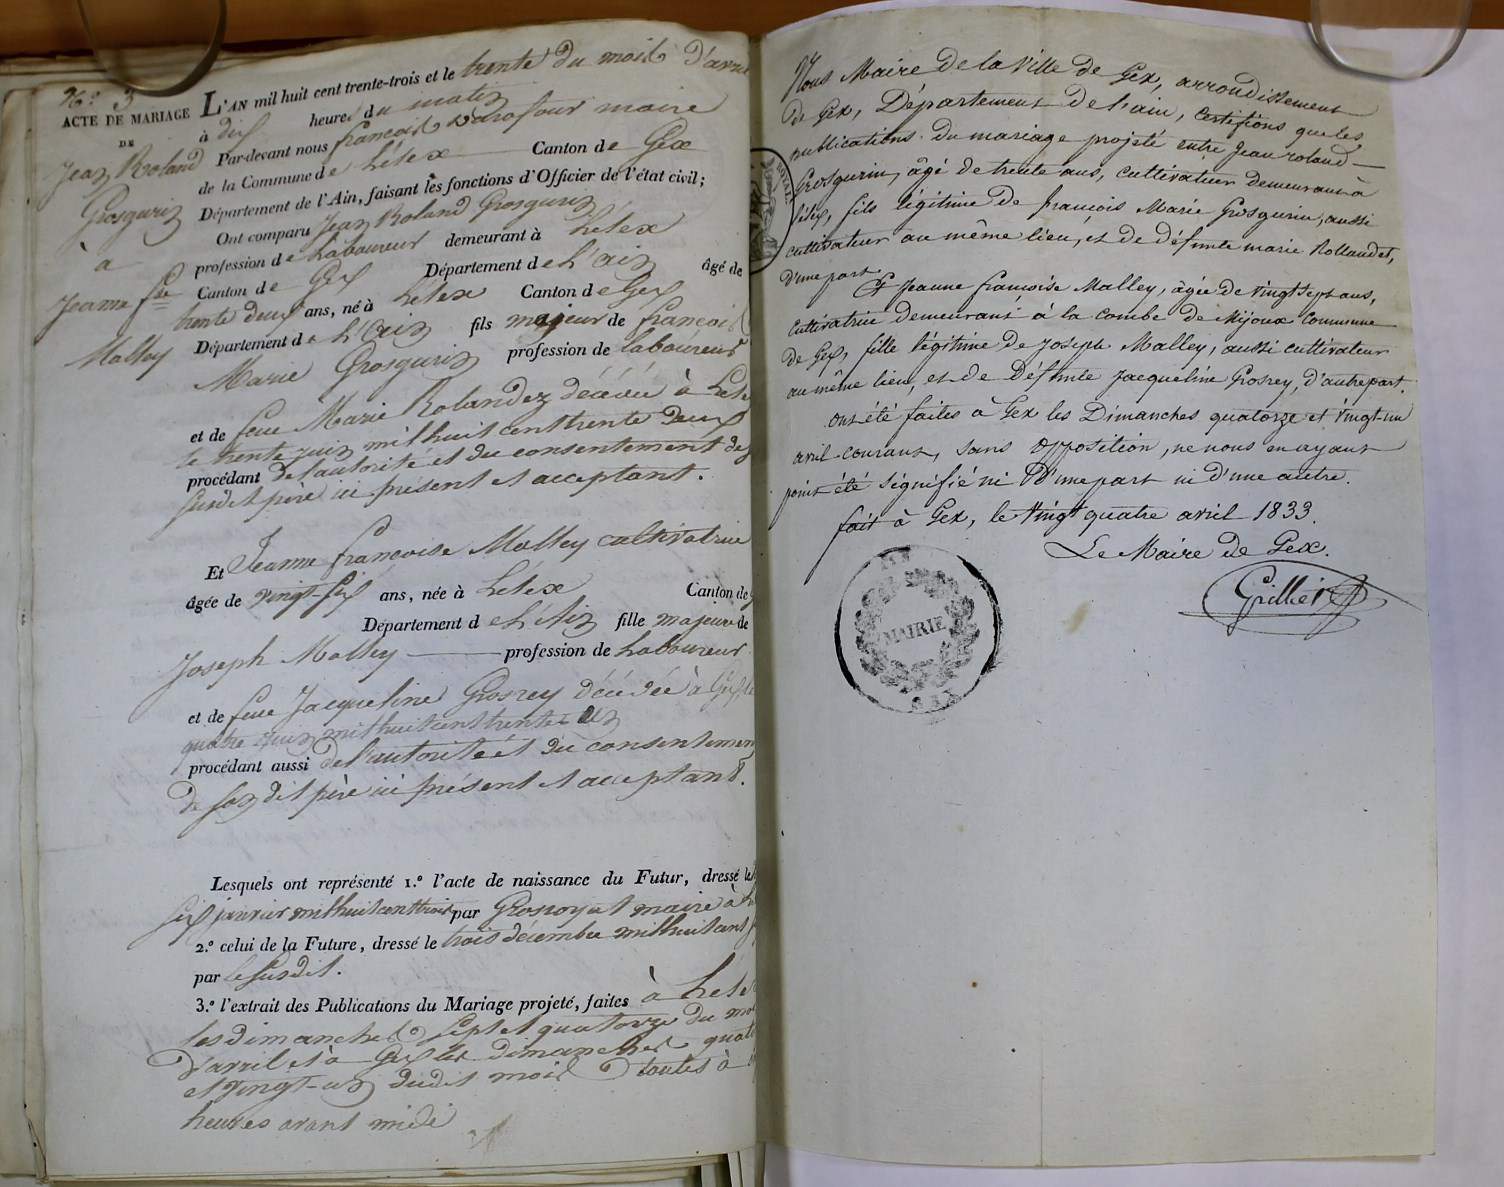 N.º 3
ACTE DE MARIAGE
DE
Jean Roland
Grosgurin
à
Jeanne f.se
Malley
L'AN mil huit cent trente-trois et le trente du mois d'avril
à dix heures du matin
Par-devant nous françois maire
de la Commune de Lélex Canton de Gex
Département de l'Ain, faisant les fonctions d'Officier de l'état civil;
Ont comparu Jean Roland Grosgurin
profession de Laboureur demeurant à Lélex
Canton de Gex Département de L'ain âgé de
trente deux ans, né à Lélex Canton de Gex
Département de L'ain fils majeur de françois
Marie Grosgurin profession de laboureur
et de feue Marie Rolandez décédée à
le trente juin mil huit cent trente deux
procédant de l'autorité et du consentement de
susdit père ici présent et acceptant.
Et Jeanne françoise Malley cultivatrice
âgée de vingt-six ans, née à Lélex Canton de
Département de L'Ain fille majeure de
Joseph Malley profession de Laboureur
et de feue Jacqueline Grosrey décédée à Gex le
quatre juin mil huit cent trente un
procédant aussi de l'autorité et du consentement
de son dit père ici présent et acceptant.
Lesquels ont représenté 1.º l'acte de naissance du Futur, dressé le
six janvier mil huit cent trois par Grosroyat maire à
2.º celui de la Future, dressé le trois décembre mil huit cent
par le susdit.
3.º l'extrait des Publications du Mariage projeté, faites à Lélex
les dimanches sept et quatorze du mois
d'avril et à Gex les dimanches
et vingt-un dudit mois toutes à
heures avant midi
Nous Maire de la Ville de Gex, arrondissement
de Gex, Département de l'ain, certifions que les
publications du mariage projeté entre Jean roland
Grosgurin, âgé de trente ans, cultivateur demeurant à
Lélex, fils légitime de françois Marie Grosgurin, aussi
cultivateur au même lieu, et de défunte marie Rollandet,
d'une part
Et Jeanne françoise Malley, âgée de vingt sept ans,
cultivatrice demeurant à la combe de Mijoux Commune
de Gex, fille légitime de Joseph Malley, aussi cultivateur
au même lieu, et de Défunte Jacqueline Grosrey, d'autre part.
ont été faites à Gex les Dimanches quatorze et vingt-un
avril courant, sans opposition, ne nous en ayant
point été signifié ni d'une part ni d'une autre.
fait à Gex, le vingt quatre avril 1833.
Le Maire de Gex.
Grilliet
MAIRIE